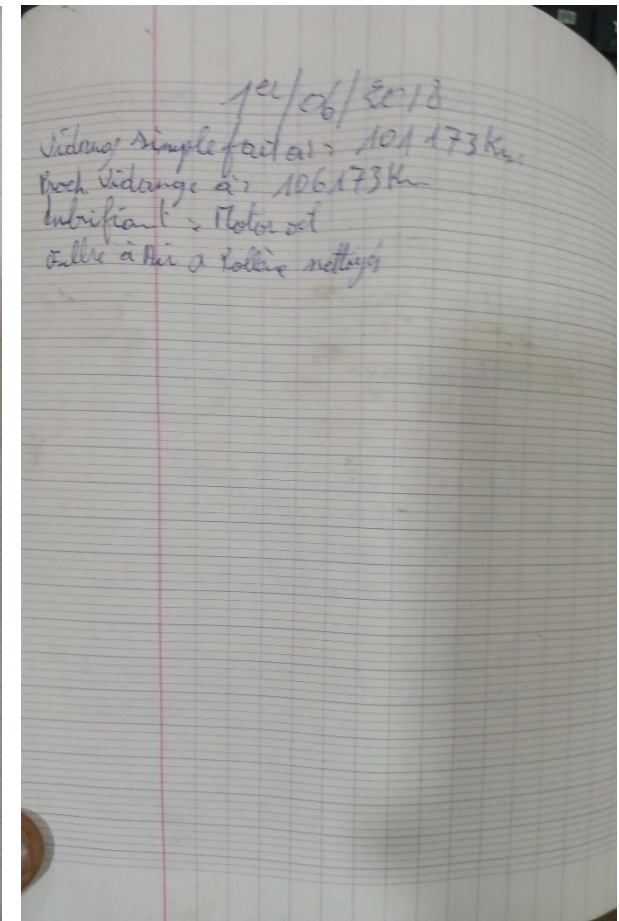 1er/06/2018
Vidang simple fait à : 101 173 Km
Proch. Vidange à : 106173 Km
Lubrifiant : Motor oil
Filtre à Air à Pollène nettoyés